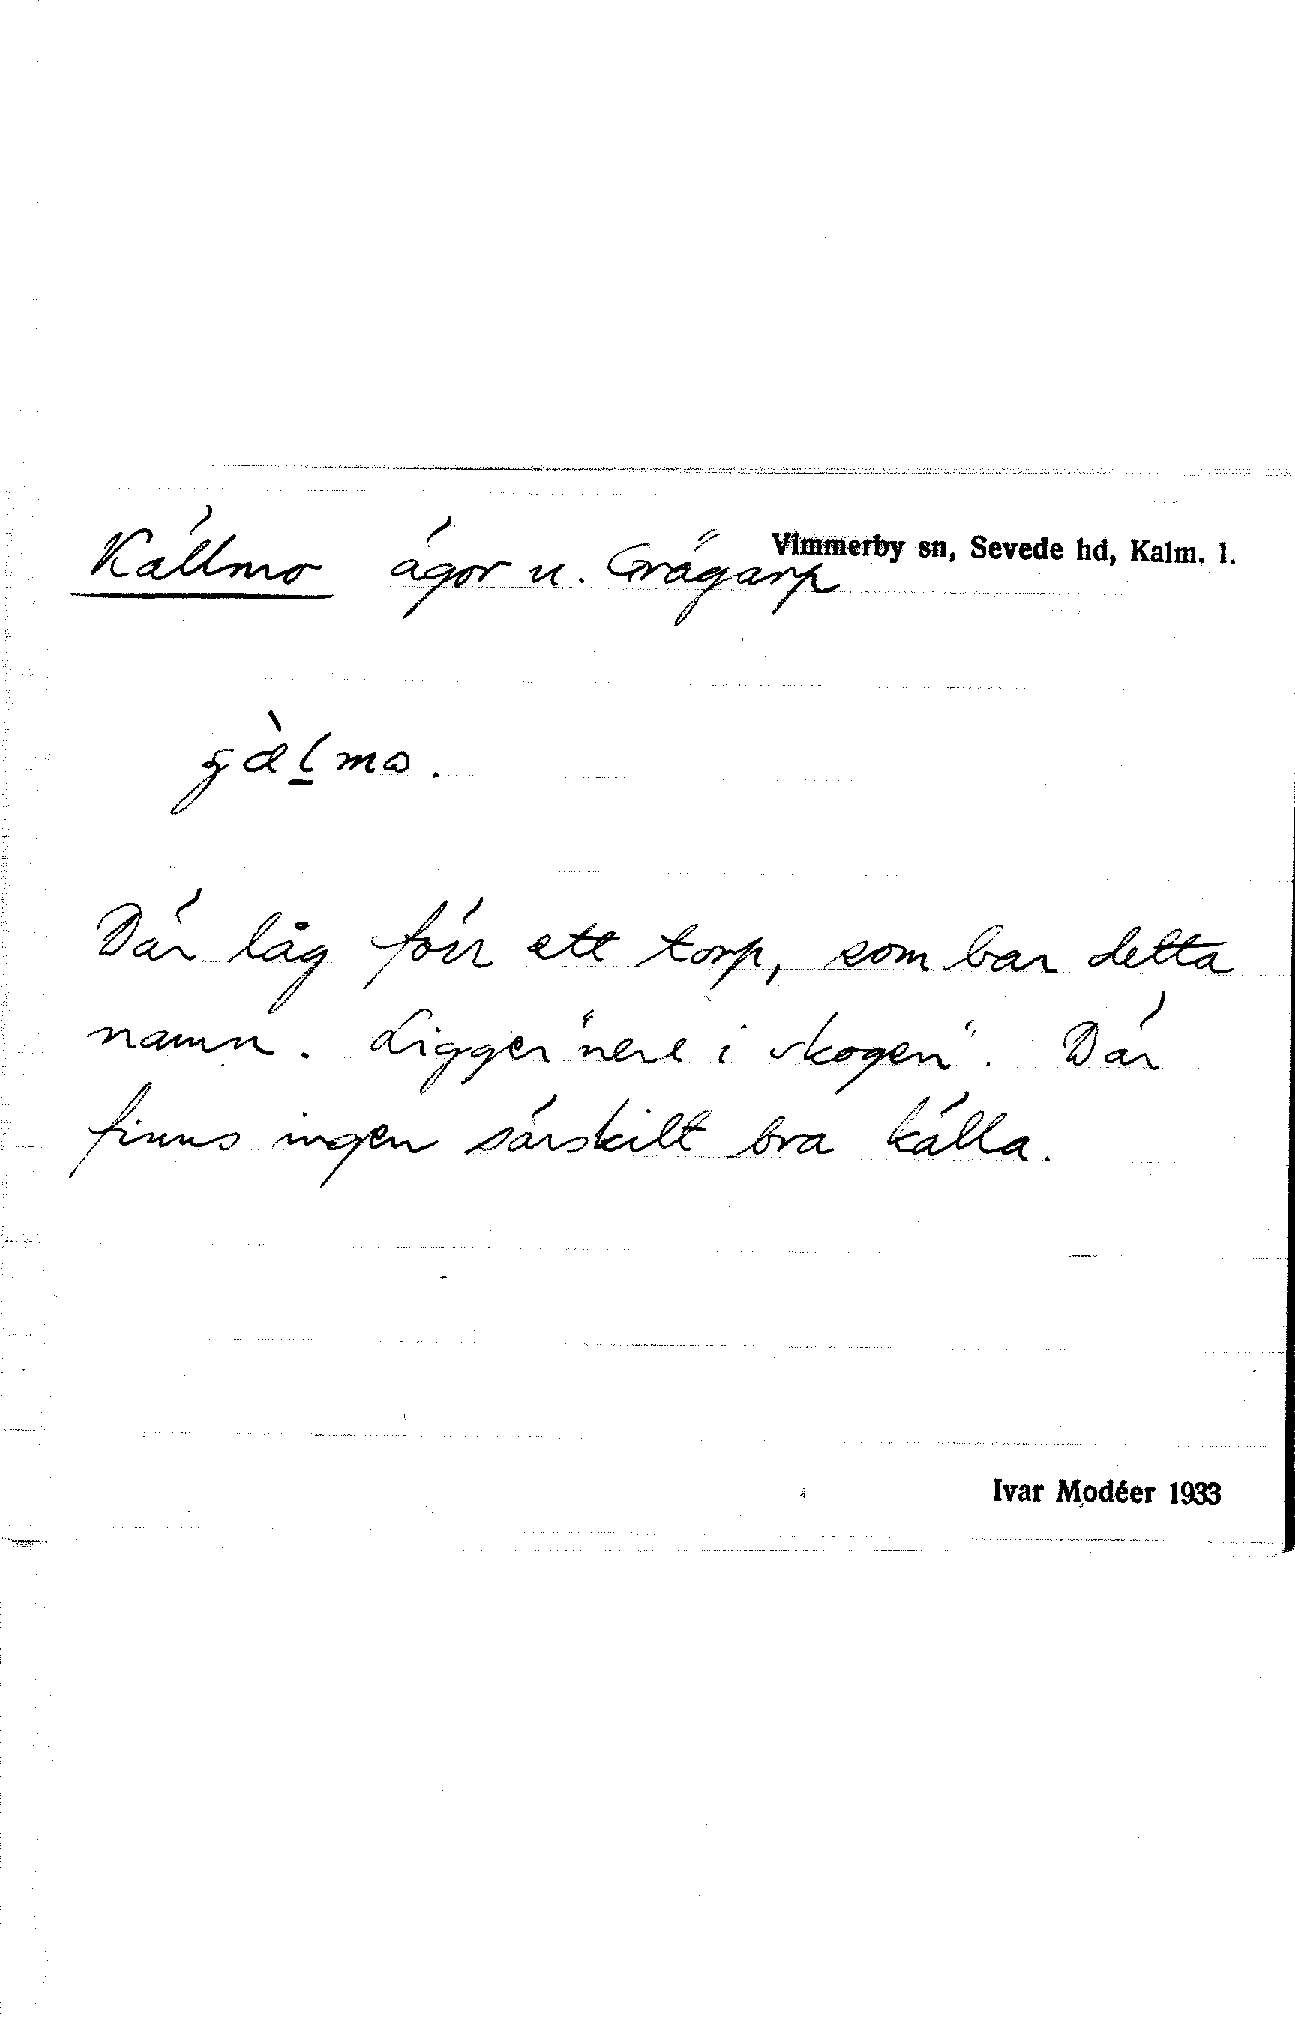 Vimmerby sn, Sevede hd, Kalm. l.
Källmo ägor u. Grägarp
Där låg förr ett torp, som bar detta
namn. Ligger "nere i skogen". Där
finns ingen särskilt bra källa.
Ivar Modéer 1933